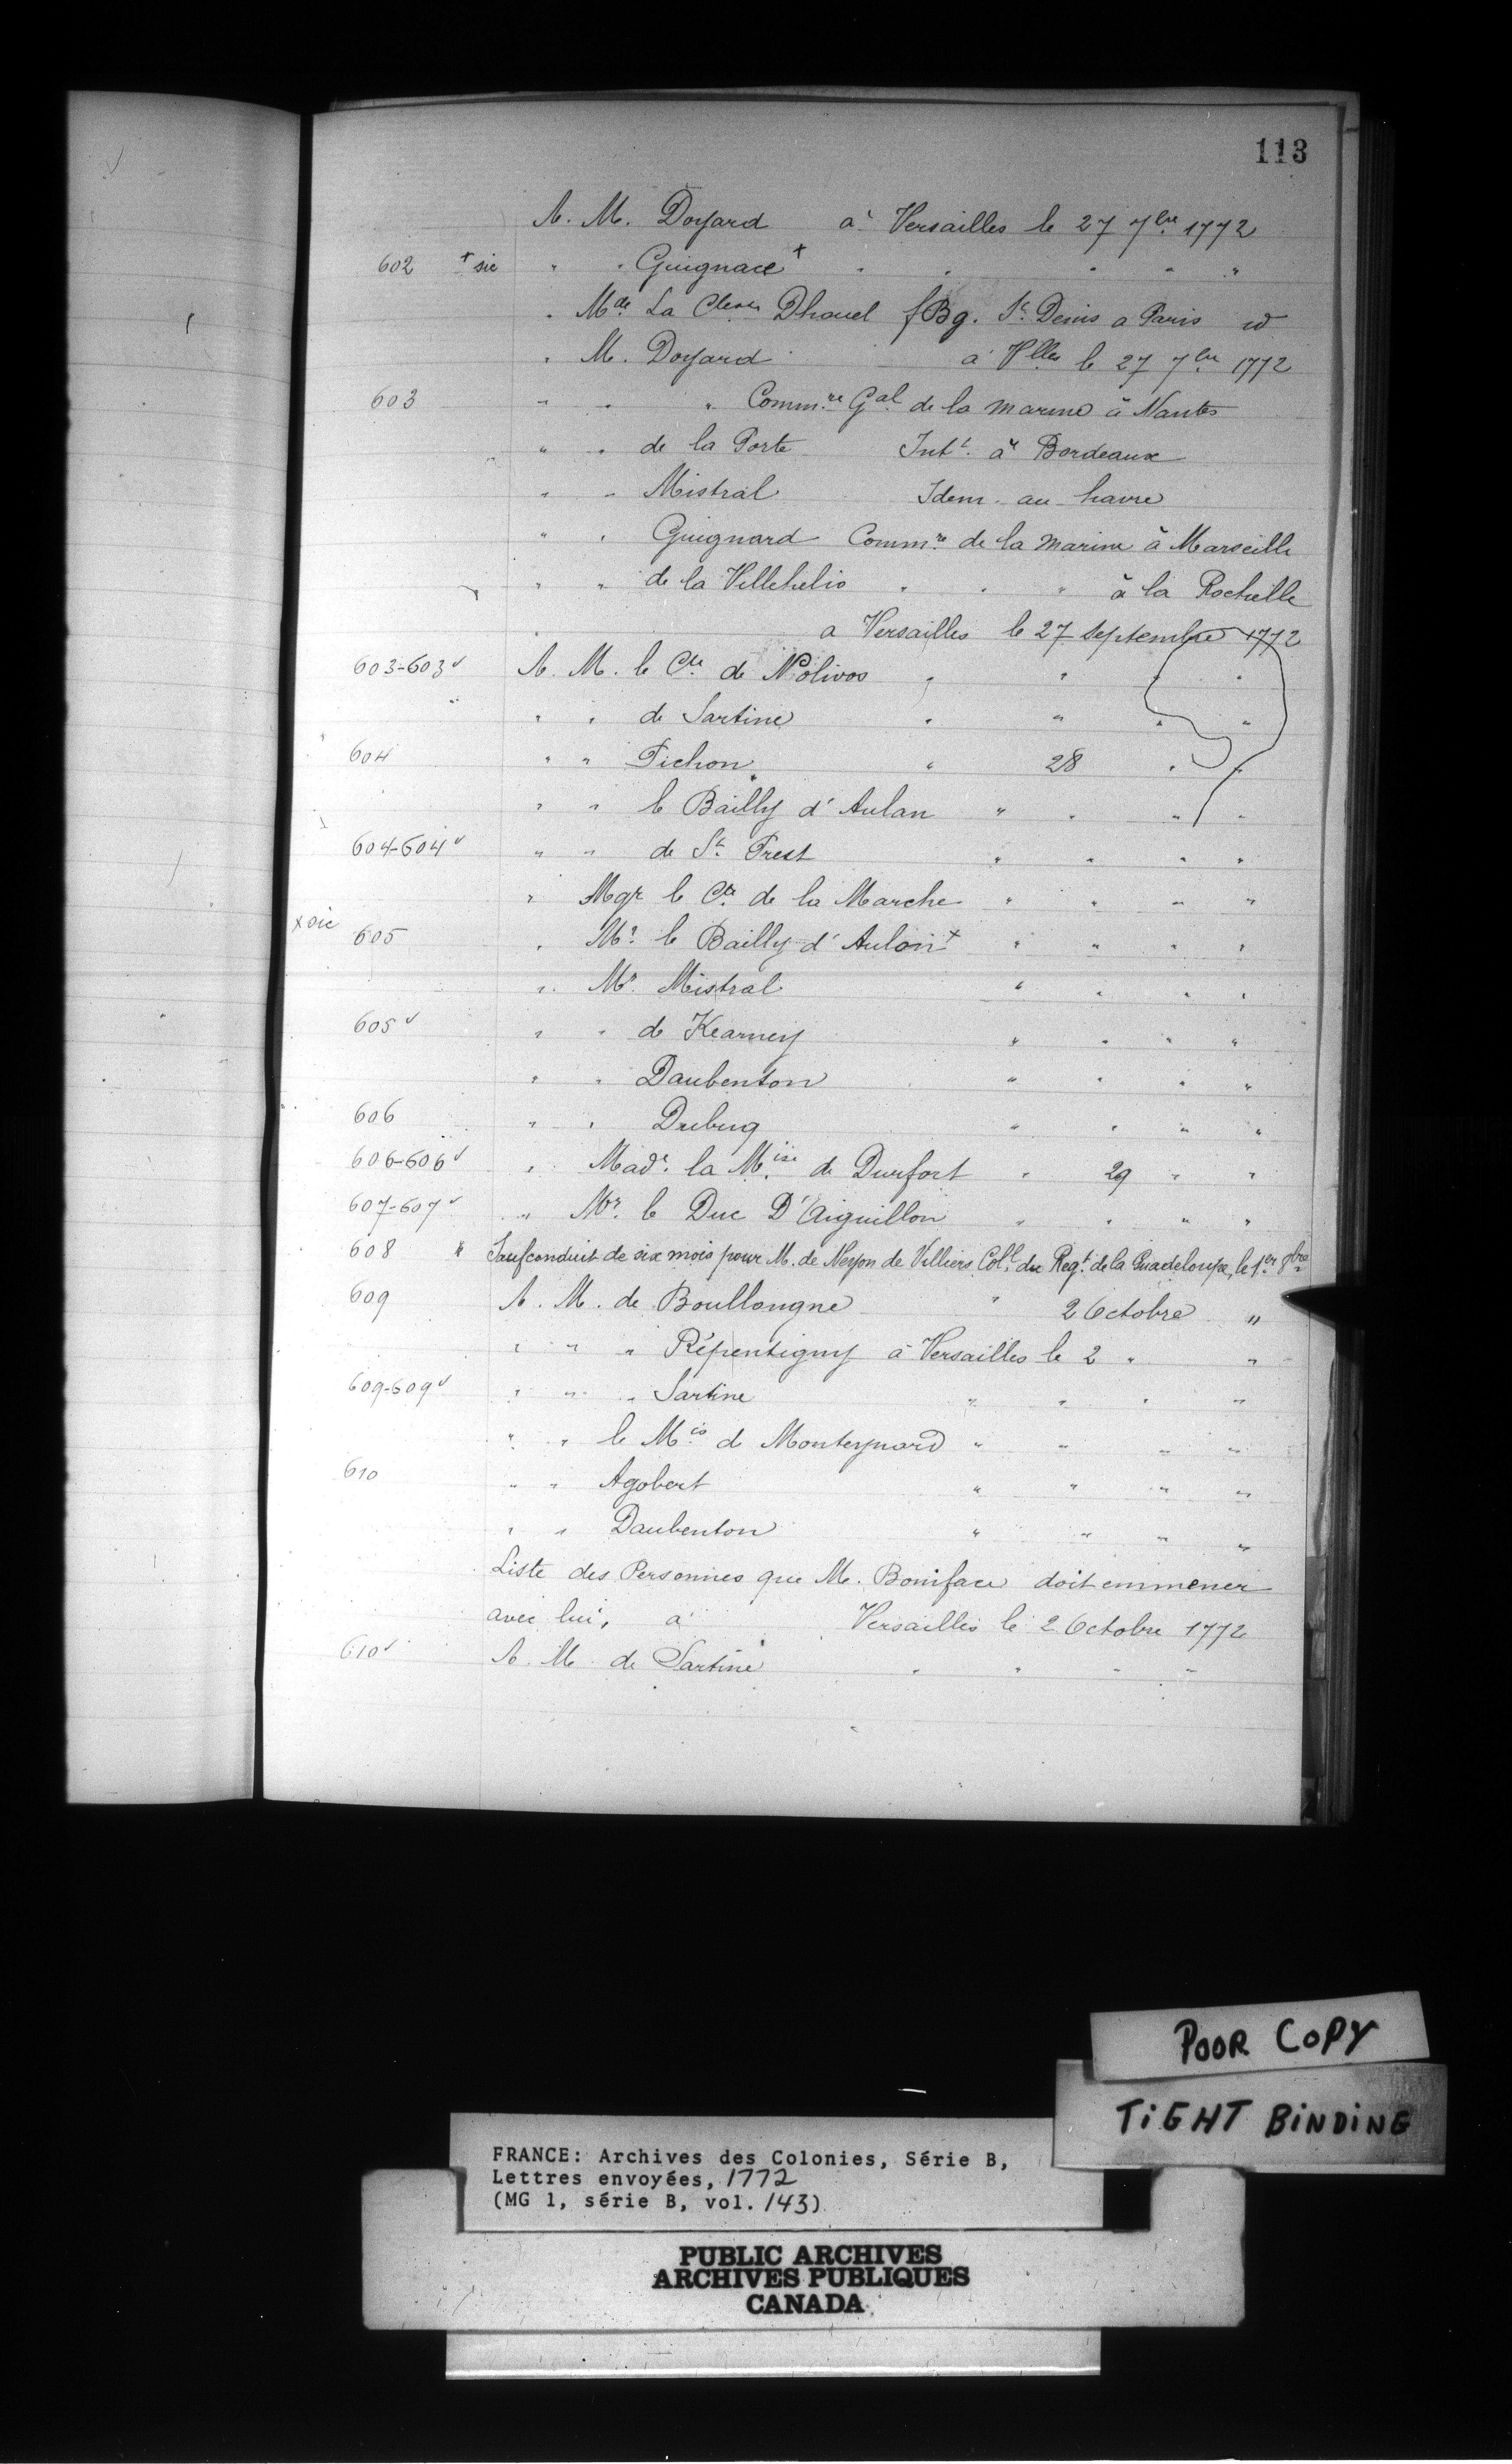 113
A. M. Doyard à Versailles le 27 7bre 1772
602 + sic " " Guignace+ " " " " "
" Mde La Dhouel fBg. St. Denis a Paris id
" M. Doyard à Vlles le 27 7bre 1772
603 " " " Commre Gal de la marine à Nantes
" " de la Porte Intt. à Bordeaux
" " Mistral Idem au havre
" " Guignard Commre de la marine à Marseille
" " de la Villehelio " " " à la Rochelle
a Versailles le 27 Septembre 1772
603-603v A. M. le Cte de Nolivos " " " "
" " de Sartine " " " "
604 " " Pichon " 28 " "
" " le Bailly d'Aulan " " " "
604-604v " " de St. Prest " " " "
" Mgr le Cte de la Marche " " " "
x sic 605 " Mr. le Bailly d'Aulon+ " " " "
" Mr. Mistral " " " "
605v " " de Kearney " " " "
" " Daubenton " " " "
606 " " Dubuq " " " "
606-606v " Made. la Mise de Durfort " 29 " "
607-607v " Mr. le Duc D'Aiguillon " " " "
608 " Saufconduit de six mois pour M. de Neyon de Villiers Coll. du Regt. de la Guadeloupe, le 1er 8bre
609 A. M. de Boullongne " 2 Octobre "
" " " Répentigny à Versailles le 2 " "
609-609v " " " Sartine " " " "
" " le Mis de Monteynard " " " "
610 " " Agobert " " " "
" " Daubenton " " " "
Liste des Personnes que M. Boniface doit emmener
avec lui, a Versailles le 2 Octobre 1772
610v A. M. de Sartine " " " "
POOR COPY
TIGHT BINDING
FRANCE: Archives des Colonies, Série B,
Lettres envoyées, 1772
(MG 1, série B, vol. 143)
PUBLIC ARCHIVES
ARCHIVES PUBLIQUES
CANADA